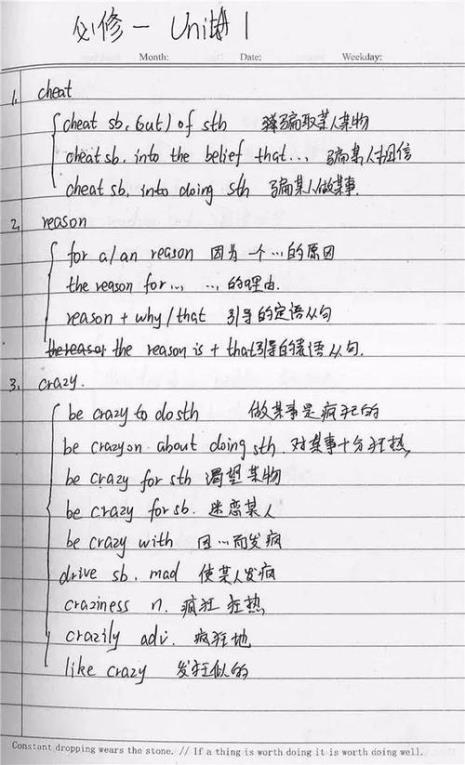 必修一 Unit 1
Month: Date: Weekday:
1. cheat
cheat sb. (out) of sth 骗取某人某物
cheat sb. into the belief that... 骗某人相信
cheat sb. into doing sth 骗某人做某事.
2. reason
for a/an reason 因为一个…的原因
the reason for... …的理由.
reason + why/that 引导的定语从句
the reason is + that引导的表语从句.
3. crazy.
be crazy to do sth 做某事是疯狂的
be crazy on about doing sth. 对某事十分狂热,
be crazy for sth 渴望某物
be crazy for sb. 迷恋某人
be crazy with 因…而发疯
drive sb. mad 使某人发疯
craziness n. 疯狂 狂热
crazily adv. 疯狂地
like crazy 发狂似的
Constant dropping wears the stone. // If a thing is worth doing it is worth doing well.